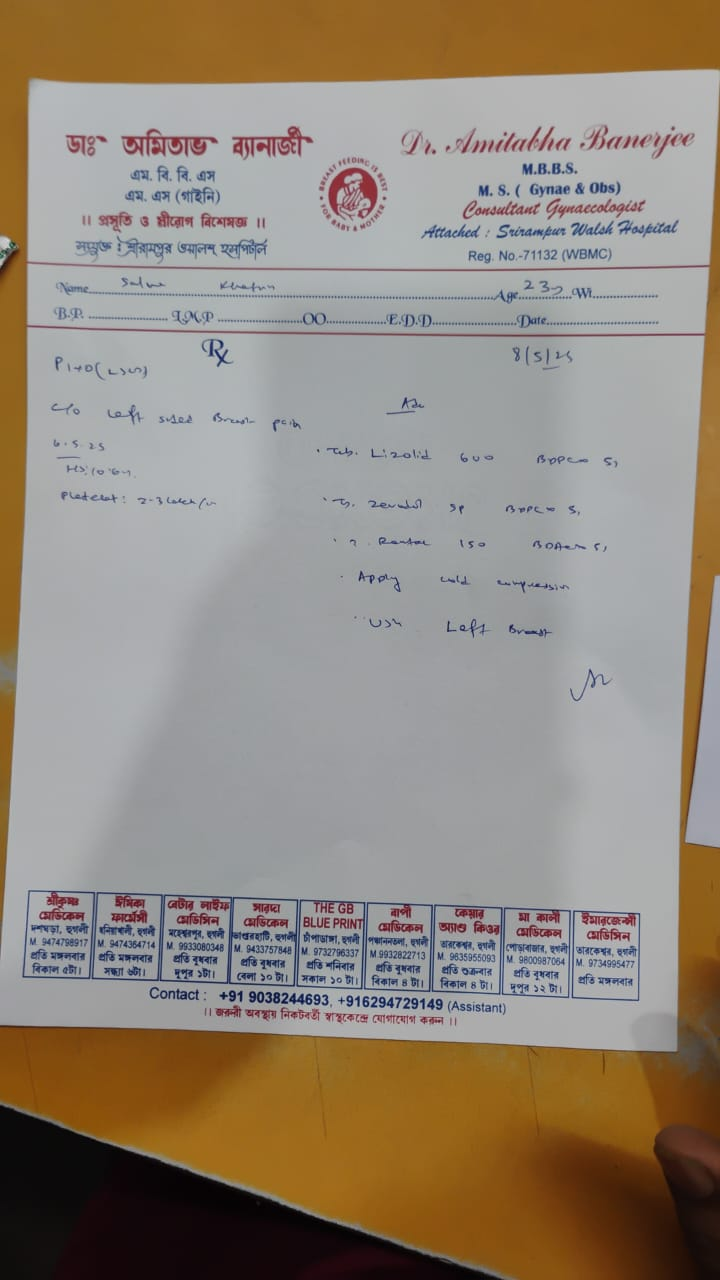 ডাঃ অমিতাভ ব্যানার্জী
এম. বি. বি. এস
এম. এস (গাইনি)
।। প্রসূতি ও স্ত্রীরোগ বিশেষজ্ঞ ।।
সংযুক্ত : শ্রীরামপুর ওয়ালশ্ হসপিটাল
BREAST FEEDING IS BEST FOR BABY & MOTHER
Dr. Amitabha Banerjee
M.B.B.S.
M. S. ( Gynae & Obs)
Consultant Gynaecologist
Attached : Srirampur Walsh Hospital
Reg. No.-71132 (WBMC)
Name Khatun Age 23y Wt
B.P. L.M.P OO E.D.D Date
Rx
8/5/25
P1+0
C/o Left sided Breast pain
6.5.25
Platelet:
Adv
Tab. Lizolid 600
T. Zerodol SP
150
Apply cold compression
USG Left Breast
শ্রীকৃষ্ণ মেডিকেল
দশঘড়া, হুগলী
M. 9474798917
প্রতি মঙ্গলবার
বিকাল ৫টা।
ঈষিকা ফার্মেসী
ধনিয়াখালী, হুগলী
M. 9474364714
প্রতি মঙ্গলবার
সন্ধ্যা ৬টা।
বেটার লাইফ মেডিসিন
মহেশ্বরপুর, হুগলী
M. 9933080348
প্রতি বুধবার
দুপুর ১টা।
সারদা মেডিকেল
ভাণ্ডারহাটি, হুগলী
M. 9433757848
প্রতি বুধবার
বেলা ১০ টা।
THE GB BLUE PRINT
চাঁপাডাঙ্গা, হুগলী
M. 9732796337
প্রতি শনিবার
সকাল ১০ টা।
বাপী মেডিকেল
পঞ্চাননতলা, হুগলী
M.9932822713
প্রতি বুধবার
বিকাল ৪ টা।
কেয়ার অ্যাণ্ড কিওর
তারকেশ্বর, হুগলী
M. 9635955093
প্রতি শুক্রবার
বিকাল ৪ টা।
মা কালী মেডিকেল
পোড়াবাজার, হুগলী
M. 9800987064
প্রতি বুধবার
দুপুর ১২ টা।
ইমারজেন্সী মেডিসিন
তারকেশ্বর, হুগলী
M. 9734995477
প্রতি মঙ্গলবার
Contact : +91 9038244693, +916294729149 (Assistant)
।। জরুরী অবস্থায় নিকটবর্তী স্বাস্থ্যকেন্দ্রে যোগাযোগ করুন ।।